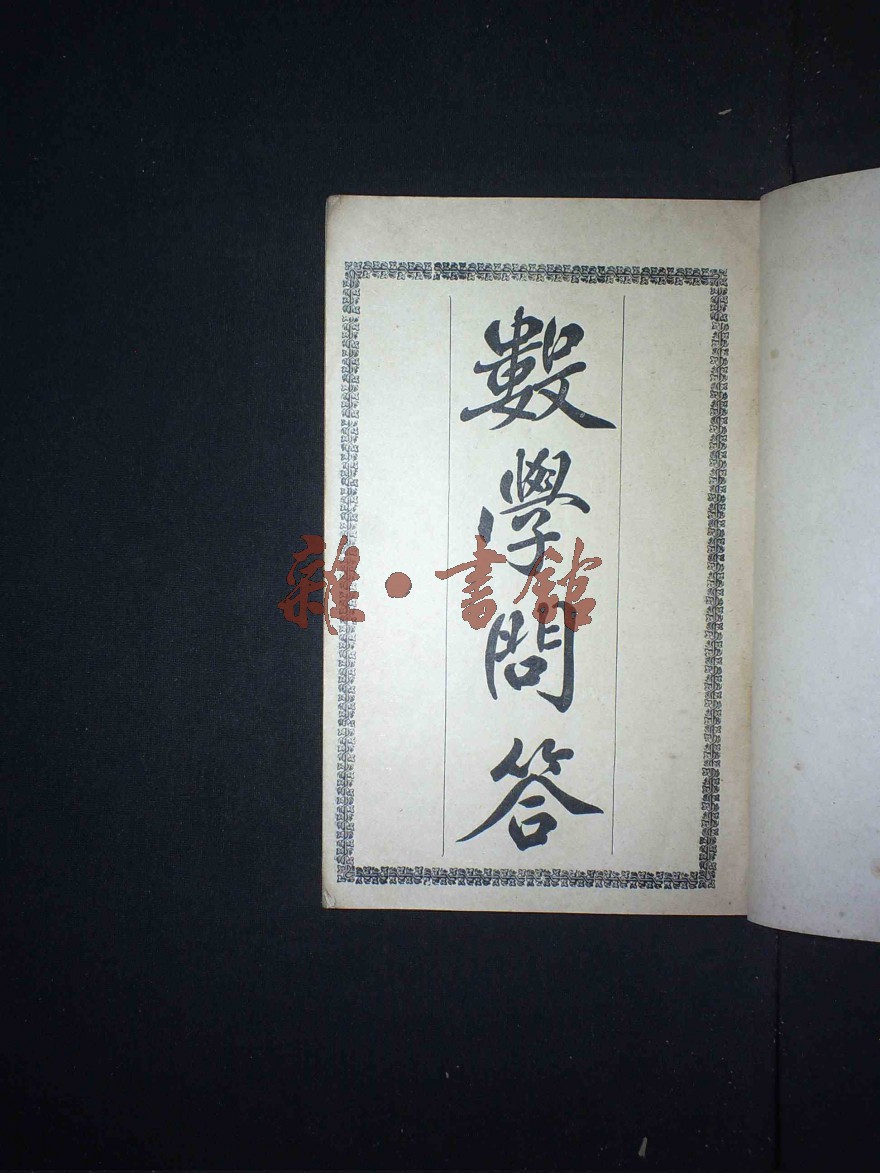 數學問答
雜·書館